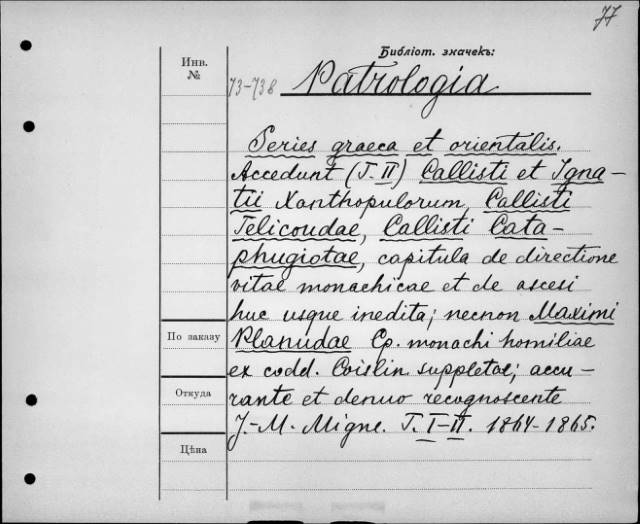 77
Библіот. значекъ:
Инв.
№
73-738 Patrologia
Series graeca et orientalis.
Accedunt (T. II) Callisti et Igna-
tii Xanthopulorum, Callisti
Telicoudae, Callisti Cata-
phugiotae, capitula de directione
vitae monachicae et de ascesi
huc usque inedita; necnon Maximi
По заказу
Planudae Cp. monachi homiliae
ex codd. Coislin. suppletae; accu-
Откуда
rante et denuo recognoscente
J.-M. Migne. T. I-II. 1864-1865.
Цѣна